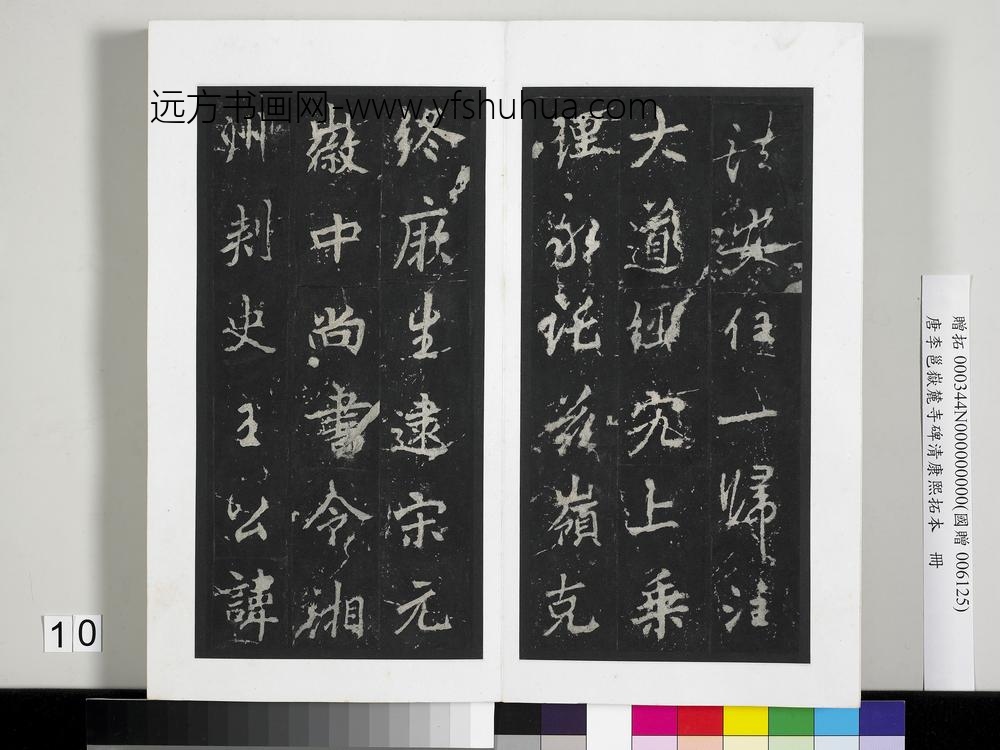 远方书画网-www.yfshuhua.com
法安住一歸注
大道經究上乘
理永託茲嶺克
終厥生逮宋元
徽中尚書令湘
州刺史王公諱
贈拓 000344N000000000(國贈 006125)
唐李邕嶽麓寺碑清康熙拓本 冊
10